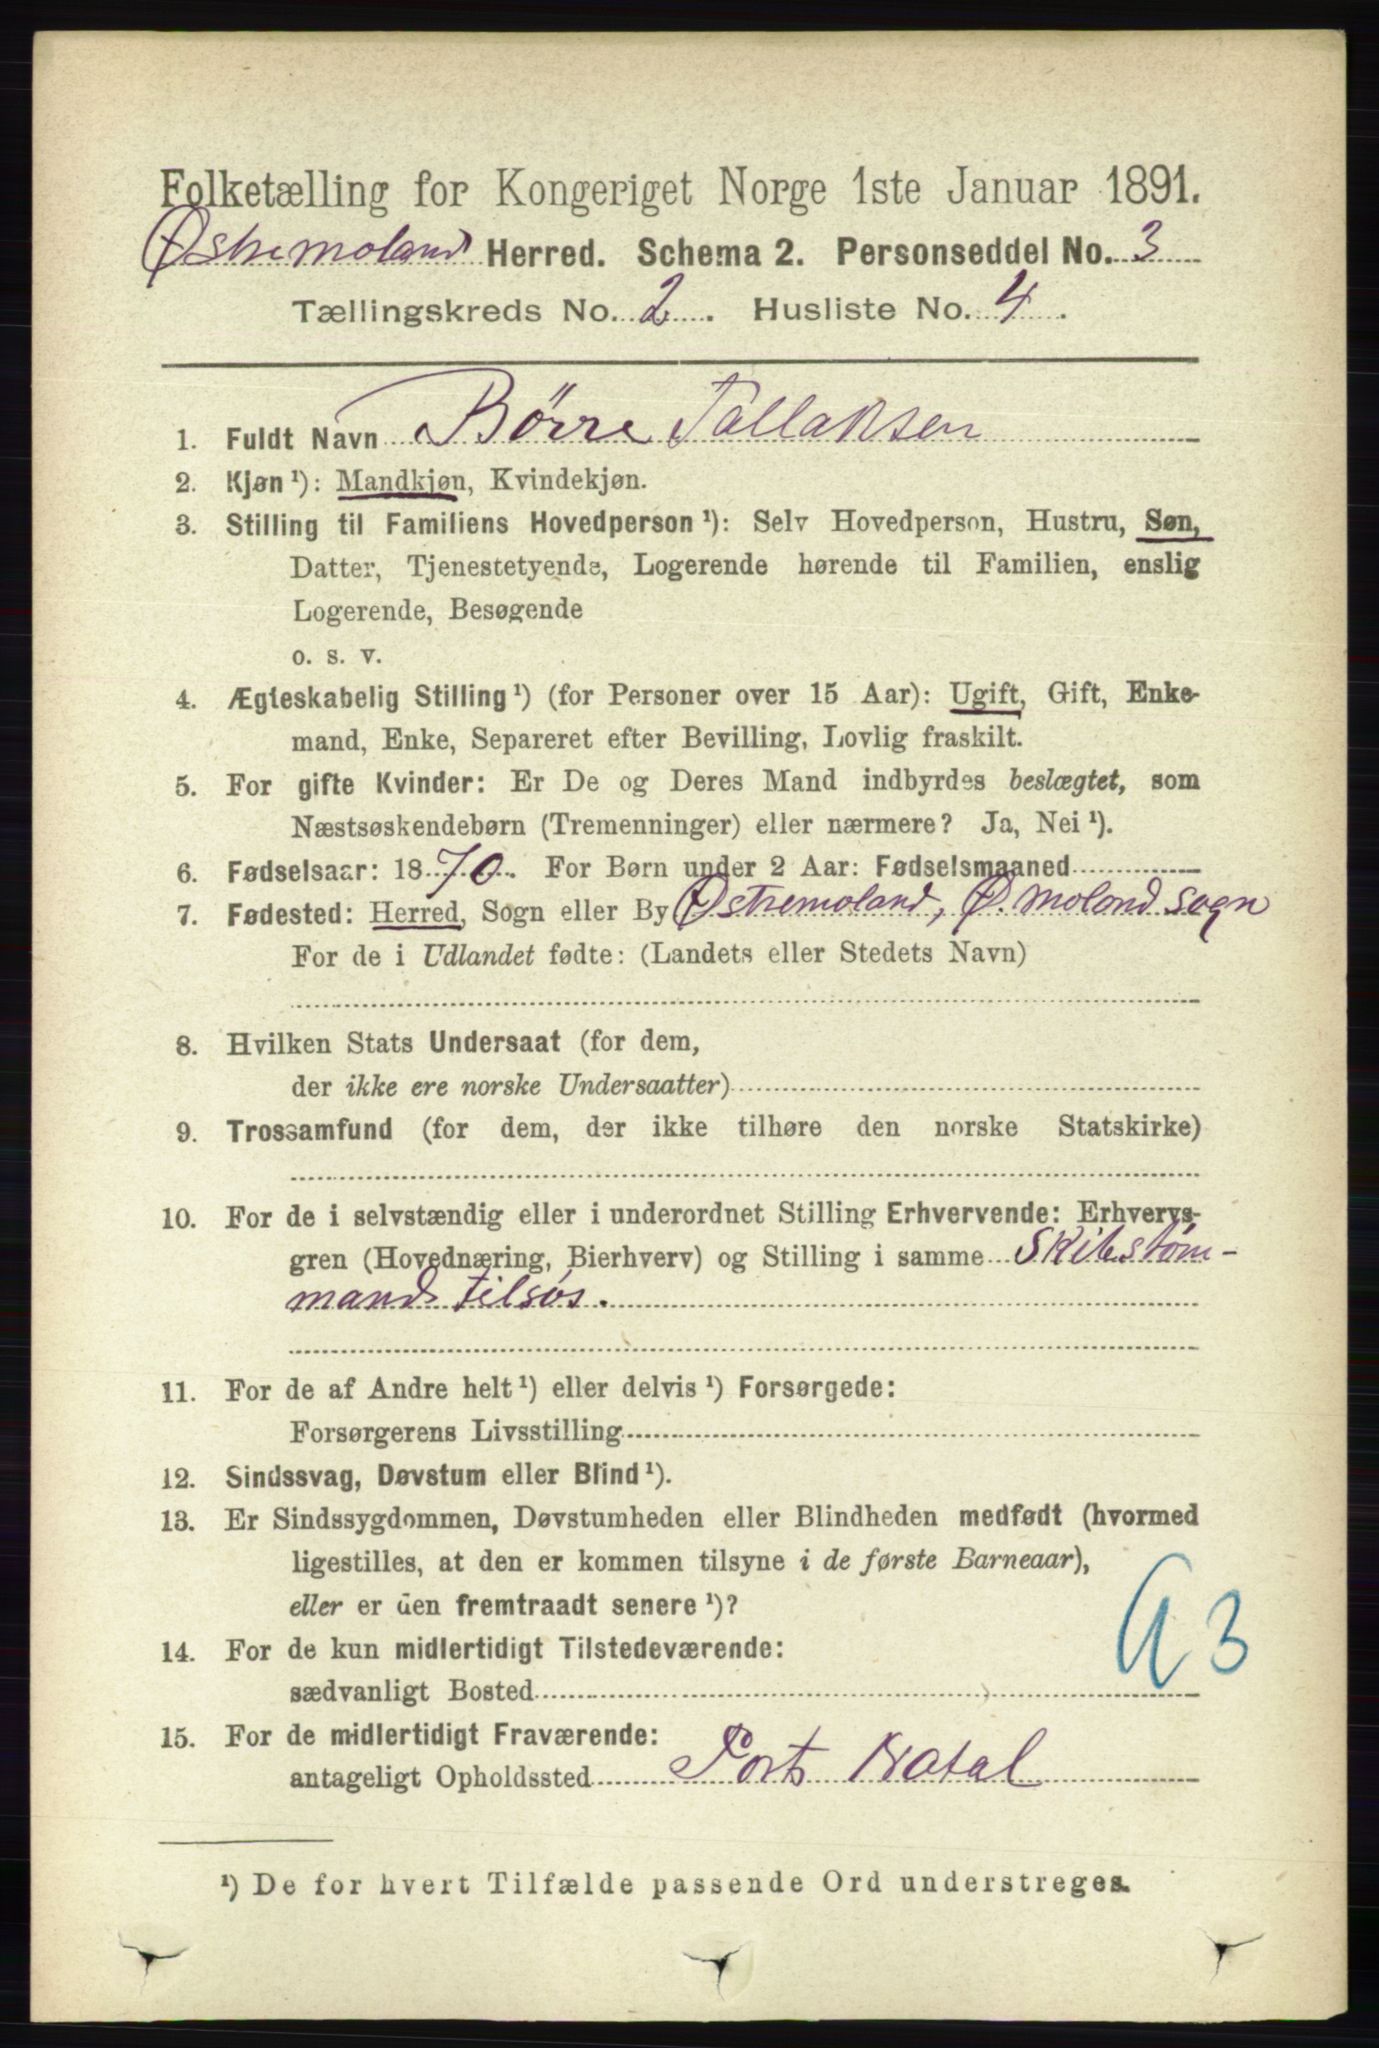 Folketælling for Kongeriget Norge 1ste Januar 1891.
Østremoland Herred. Schema 2. Personseddel No. 3
Tællingskreds No. 2. Husliste No. 4.
1. Fuldt Navn Børre Tallaksen
2. Kjøn ¹): Mandkjøn, Kvindekjøn.
3. Stilling til Familiens Hovedperson ¹): Selv Hovedperson, Hustru, Søn,
Datter, Tjenestetyende, Logerende hørende til Familien, enslig
Logerende, Besøgende
o. s. v.
4. Ægteskabelig Stilling ¹) (for Personer over 15 Aar): Ugift, Gift, Enke-
mand, Enke, Separeret efter Bevilling, Lovlig fraskilt.
5. For gifte Kvinder: Er De og Deres Mand indbyrdes beslægtet, som
Næstsøskendebørn (Tremenninger) eller nærmere? Ja, Nei ¹).
6. Fødselsaar: 1870. For Børn under 2 Aar: Fødselsmaaned
7. Fødested: Herred, Sogn eller By Østremoland, Ø. moland sogn
For de i Udlandet fødte: (Landets eller Stedets Navn)
8. Hvilken Stats Undersaat (for dem,
der ikke ere norske Undersaatter)
9. Trossamfund (for dem, der ikke tilhøre den norske Statskirke)
10. For de i selvstændig eller i underordnet Stilling Erhvervende: Erhvervs-
gren (Hovednæring, Bierhverv) og Stilling i samme Skibstøm-
mand tilsøs.
11. For de af Andre helt ¹) eller delvis ¹) Forsørgede:
Forsørgerens Livsstilling
12. Sindssvag, Døvstum eller Blind ¹).
13. Er Sindssygdommen, Døvstumheden eller Blindheden medfødt (hvormed
ligestilles, at den er kommen tilsyne i de første Barneaar),
eller er den fremtraadt senere ¹)?
14. For de kun midlertidigt Tilstedeværende:
sædvanligt Bosted
15. For de midlertidigt Fraværende:
antageligt Opholdssted Port Natal
¹) De for hvert Tilfælde passende Ord understreges.